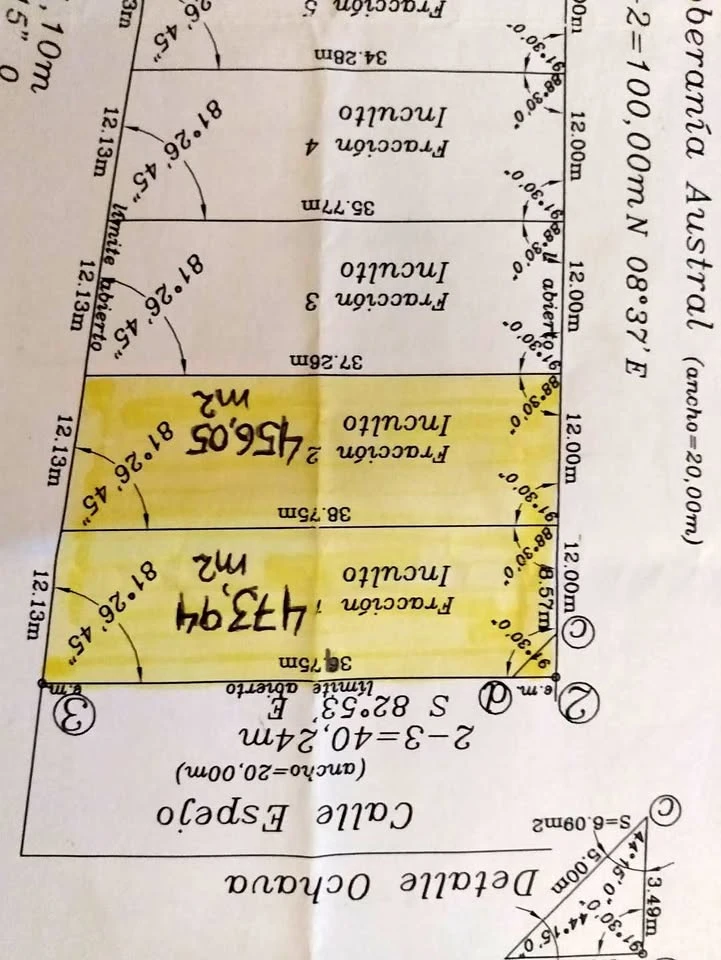 Detalle Ochava
91°30'0"
3.49m
44°15'0"
44°15'0"
5.00m
S=6.09m2
C
Calle Espejo
(ancho=20,00m)
2-3=40,24m
S 82°53' E
límite abierto
2
e.m.
d
C
3
e.m.
36,75m
91°30'0"
8.57m
12.00m
Fracción 1
Inculto
473,94
m2
81°26'45"
12.13m
88°30'0"
38.75m
91°30'0"
12.00m
Fracción 2
Inculto
456,05
m2
81°26'45"
12.13m
88°30'0"
37.26m
91°30'0"
abierto
12.00m
Fracción 3
Inculto
81°26'45"
12.13m
límite abierto
88°30'0"
35.77m
91°30'0"
12.00m
Fracción 4
Inculto
81°26'45"
12.13m
88°30'0"
34.28m
91°30'0"
00m
Fracción 5
26'45"
3m
,10m
5" 0
-2=100,00m N 08°37' E
oberanía Austral (ancho=20,00m)